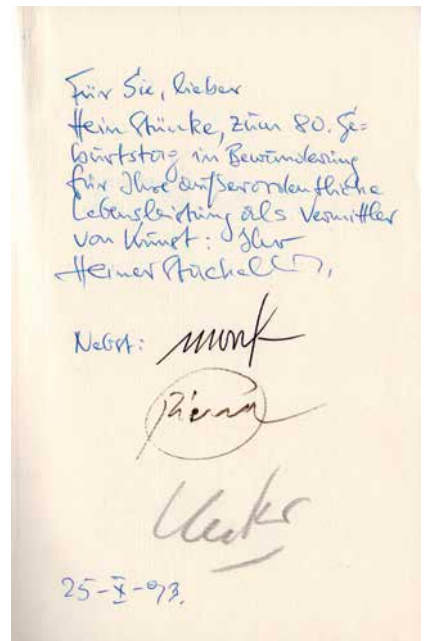 Für Sie, lieber
Hein Stünke, zum 80. Ge=
burtstag in Bewunderung
für Ihre außerordentliche
Lebensleistung als Vermittler
von Kunst: Ihr
Heiner Stachelhaus,
Nebst: Mack
Piene
Uecker
25-X-93.